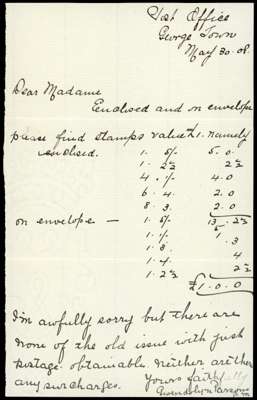 Post Office
George Town
May 30. 08.
Dear Madame
Enclosed and on envelope
please find stamps value £1. namely
enclosed. 1. 5/- 5. 0.
1. 2½ 2½
4. 1/- 4. 0
6. 4. 2. 0
8. 3. 2. 0
on envelope — 1. 5/- 13. 2½
1. 1/-
1. 3. . 3
1. 4. 4
1. 2½ 2½
£1. 0. 0
I'm awfully sorry but there are
none of the old issue with just
postage obtainable neither are there
any surcharges. Yours faithf
Gwendolyn Parsons